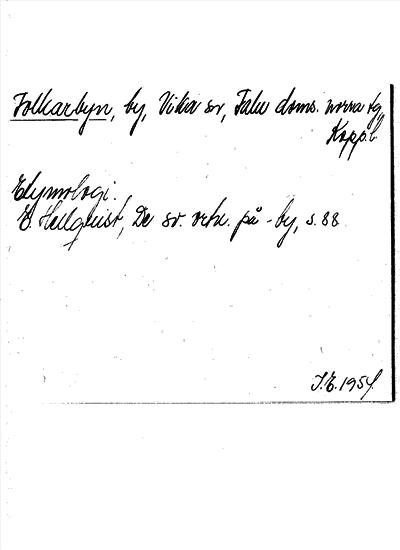 Folkarbyn, by, Vika sn, Falu doms. norra tg
Kopp. l.
Etymologi.
E. Hellquist, De sv. ortn. på -by, s. 88
J.E. 1954.